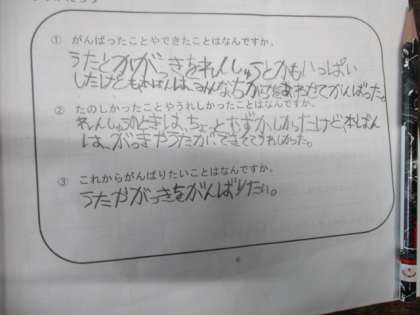 ① がんばったことやできたことはなんですか。
うたとかがっきをれんしゅうとかもいっぱい
したけどもほんばんは、みんなちからをあわせてがんばった。
② たのしかったことやうれしかったことはなんですか。
れんしゅうのときは、ちょっとむずかしかったけど、本ばん
は、がっきやうたが、できてうれしかった。
③ これからがんばりたいことはなんですか。
うたやがっきをがんばりたい。